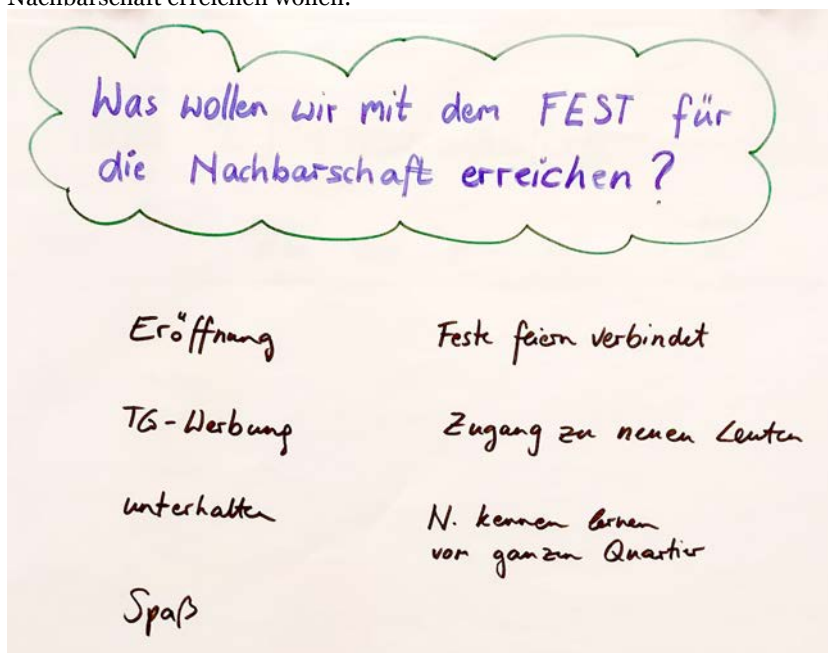 Nachbarschaft erreichen wollen.
Was wollen wir mit dem FEST für
die Nachbarschaft erreichen?
Eröffnung
TG-Werbung
unterhalten
Spaß
Feste feiern verbindet
Zugang zu neuen Leuten
N. kennen lernen
vom ganzen Quartier